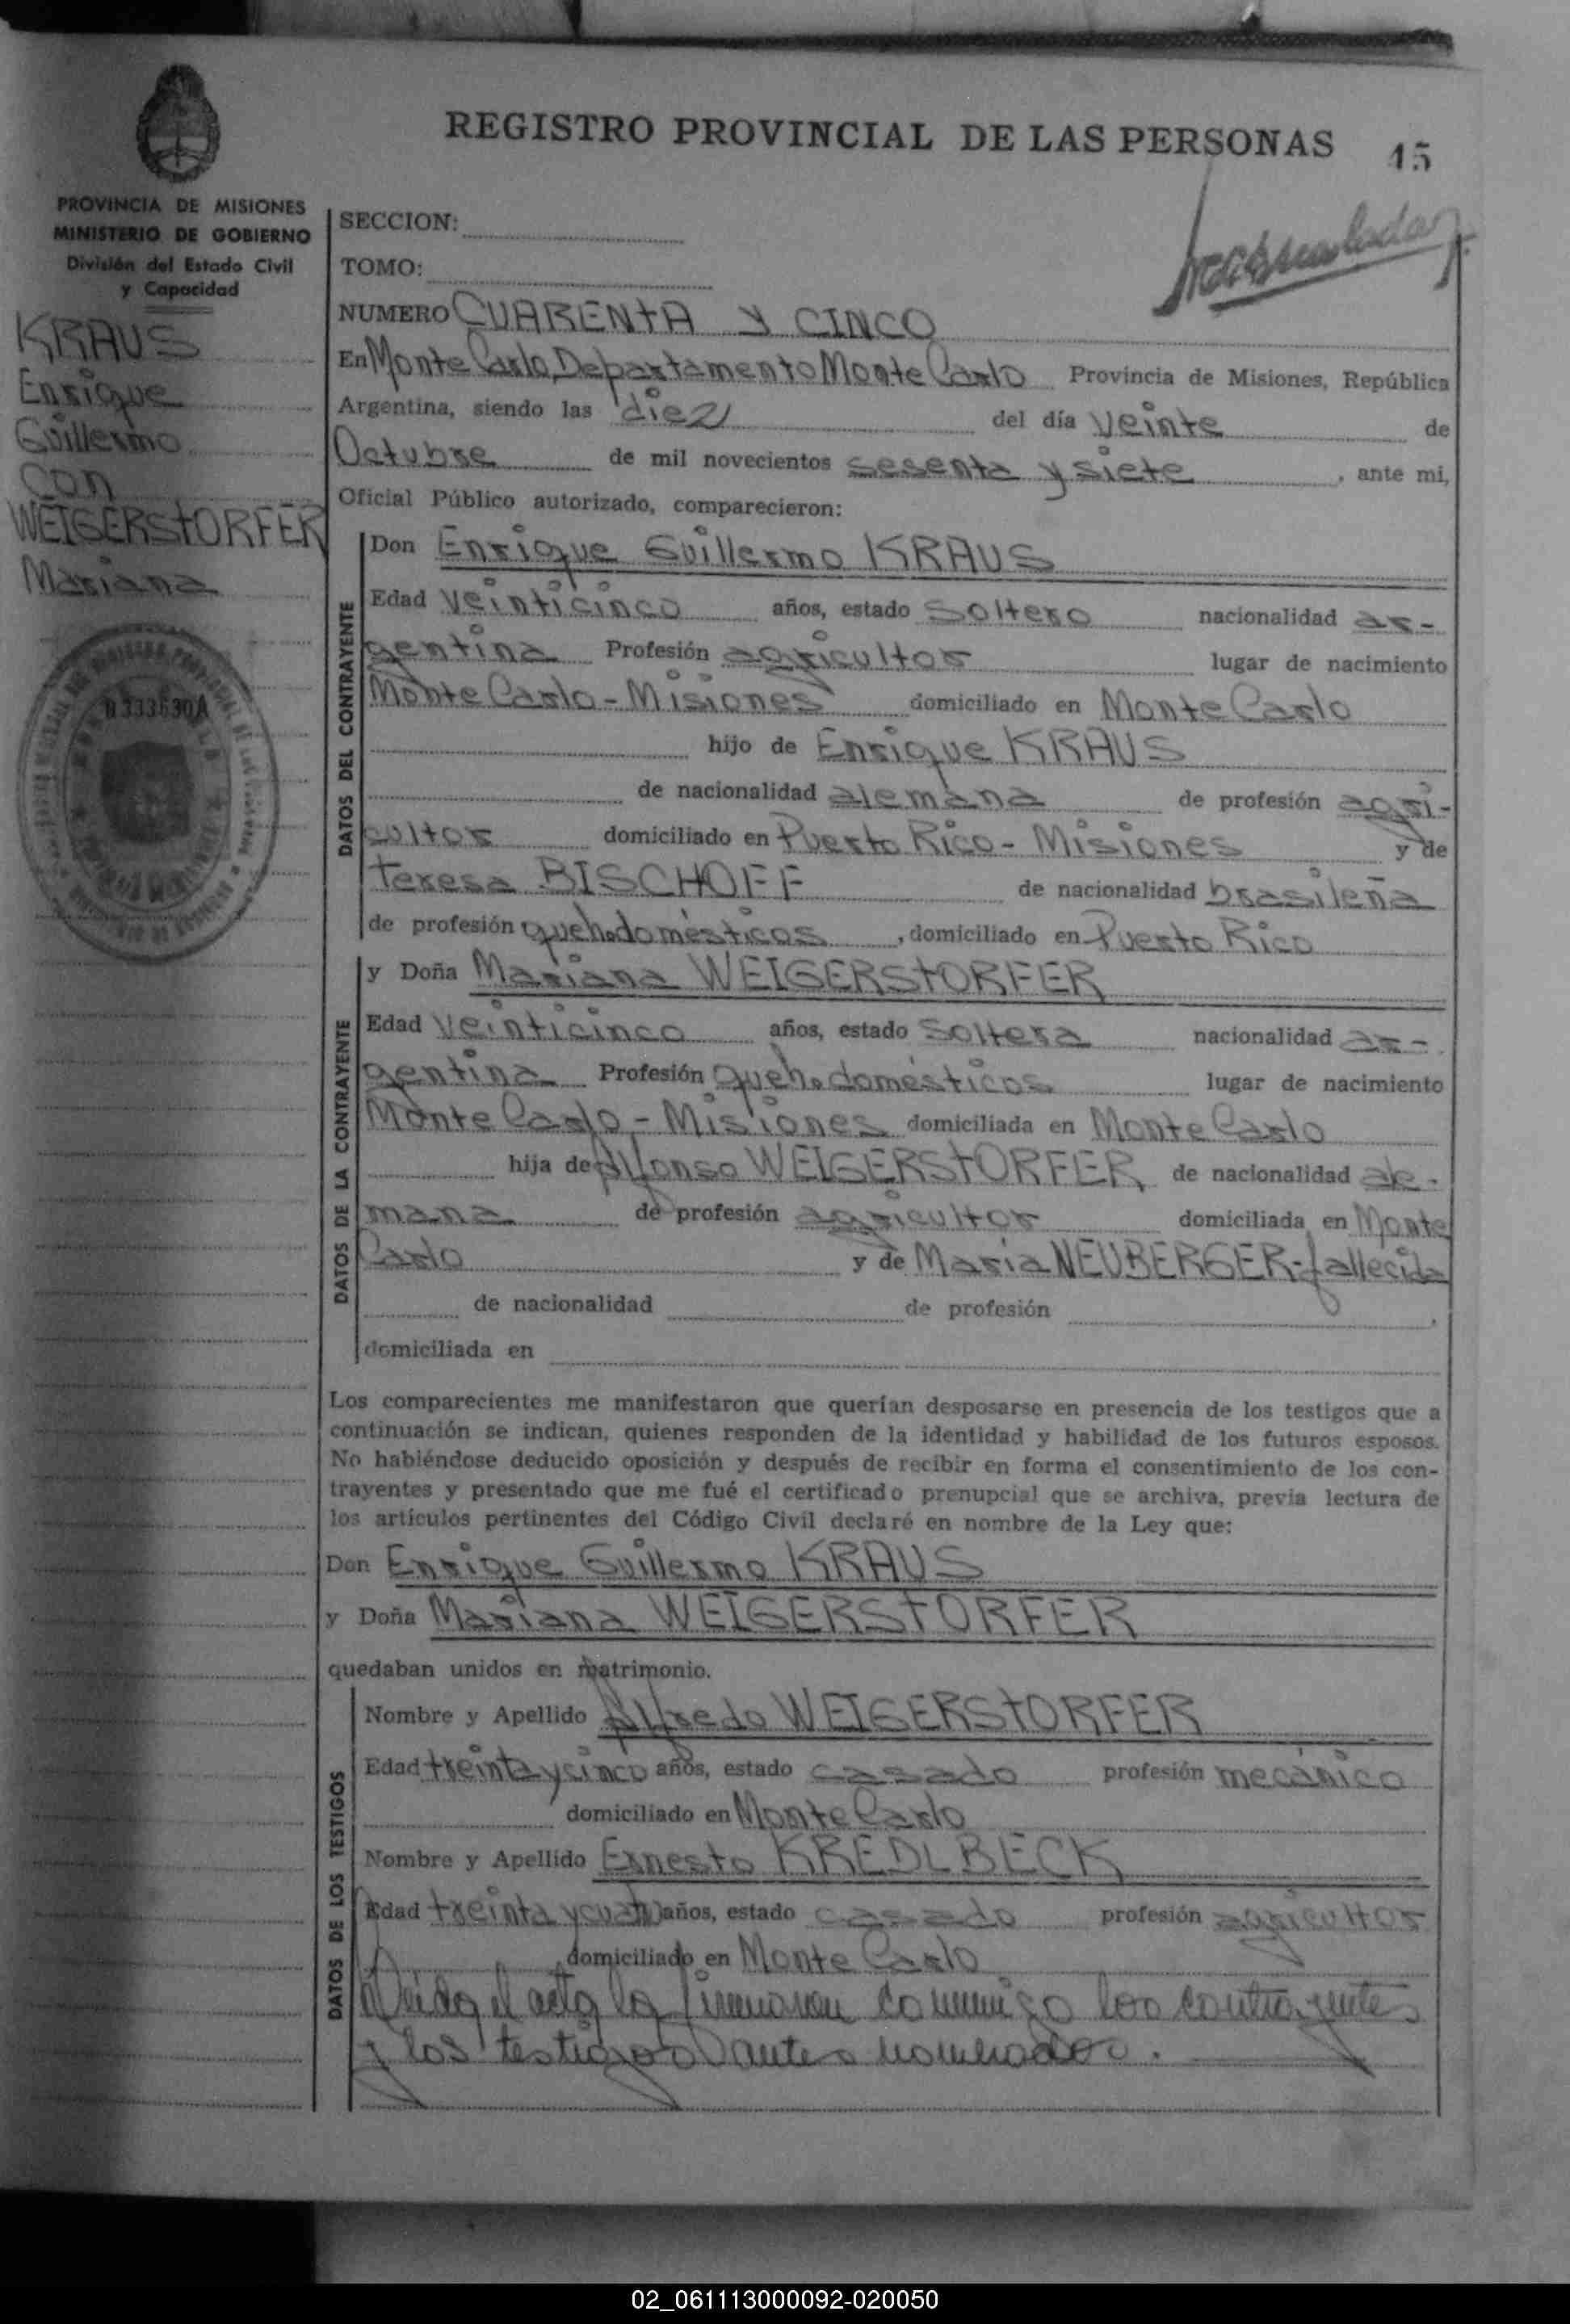 REGISTRO PROVINCIAL DE LAS PERSONAS 15
PROVINCIA DE MISIONES
MINISTERIO DE GOBIERNO
División del Estado Civil
y Capacidad
KRAUS
Enrique
Guillermo
Con
WEIGERSTORFER
Mariana
B333630A
SECCION:
TOMO:
NUMERO CUARENTA Y CINCO
En Monte Carlo, Departamento Monte Carlo Provincia de Misiones, República
Argentina, siendo las diez del día veinte de
Octubre de mil novecientos sesenta y siete, ante mi,
Oficial Público autorizado, comparecieron:
DATOS DEL CONTRAYENTE
Don Enrique Guillermo KRAUS
Edad veinticinco años, estado soltero nacionalidad ar-
gentina Profesión agricultor lugar de nacimiento
Monte Carlo - Misiones domiciliado en Monte Carlo
hijo de Enrique KRAUS
de nacionalidad alemana de profesión agri-
cultor domiciliado en Puerto Rico - Misiones y de
Teresa BISCHOFF de nacionalidad brasileña
de profesión queh. domésticos, domiciliado en Puerto Rico
DATOS DE LA CONTRAYENTE
y Doña Mariana WEIGERSTORFER
Edad veinticinco años, estado soltera nacionalidad ar-
gentina Profesión queh. domésticos lugar de nacimiento
Monte Carlo - Misiones domiciliada en Monte Carlo
hija de Alfonso WEIGERSTORFER de nacionalidad ale-
mana de profesión agricultor domiciliada en Monte
Carlo y de Maria NEUBERGER - fallecida
de nacionalidad de profesión ,
domiciliada en
Los comparecientes me manifestaron que querían desposarse en presencia de los testigos que a
continuación se indican, quienes responden de la identidad y habilidad de los futuros esposos.
No habiéndose deducido oposición y después de recibir en forma el consentimiento de los con-
trayentes y presentado que me fué el certificado prenupcial que se archiva, previa lectura de
los artículos pertinentes del Código Civil declaré en nombre de la Ley que:
Don Enrique Guillermo KRAUS
y Doña Mariana WEIGERSTORFER
quedaban unidos en matrimonio.
DATOS DE LOS TESTIGOS
Nombre y Apellido Alfredo WEIGERSTORFER
Edad treinta y cinco años, estado casado profesión mecánico
domiciliado en Monte Carlo
Nombre y Apellido Ernesto KREDLBECK
Edad treinta y cuatro años, estado casado profesión agricultor
domiciliado en Monte Carlo
Leida el acta la firmaron conmigo los contrayentes
y los testigos antes nombrados.
02_061113000092-020050